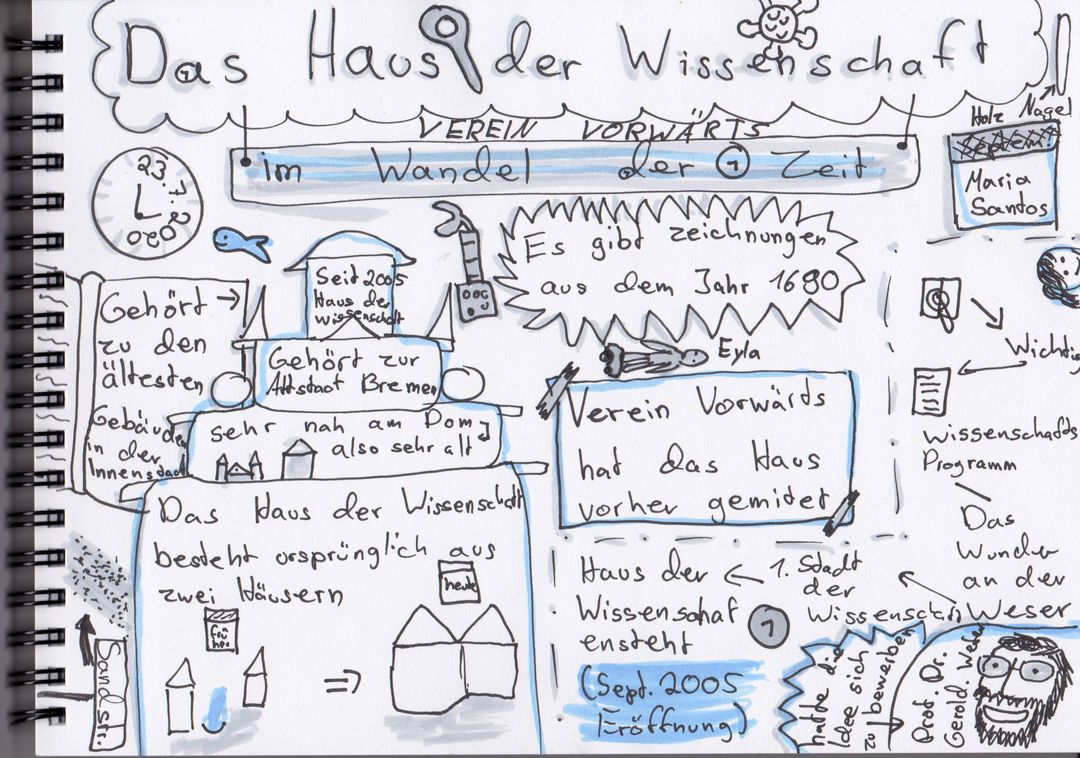 Das Haus der Wissenschaft
VEREIN VORWÄRTS
im Wandel der 1 Zeit
Holz Nagel
Maria
Santos
23.7.
2020
Gehört →
zu den
ältesten
Gebäuden
in der
Innenstadt
Seit 2005
Haus der
Wissenschaft
Gehört zur
Altstadt Bremen
sehr nah am Dom
also sehr alt
Das Haus der Wissenschaft
besteht orsprünglich aus
zwei Häusern
früher
heute
⇒
Sandstr.
Es gibt zeichnungen
aus dem Jahr 1680
Eyla
Verein Vorwärds
hat das Haus
vorher gemitet
Wichtig
Wissenschafts
Programm
Das
Wunder
an der
Weser
1. Stadt
der
Wissenschaft
Haus der ←
Wissenschaf
ensteht
1
(Sept. 2005
Eröffnung)
hatte die
Idee sich
zu bewerben
Prof. Dr.
Gerold Wefer